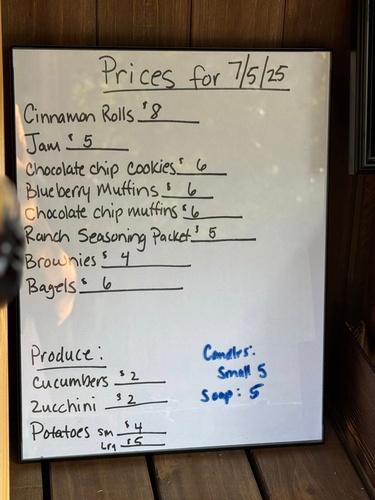 Prices for 7/5/25
Cinnamon Rolls $8
Jam $5
Chocolate chip cookies $6
Blueberry Muffins $6
Chocolate chip muffins $6
Ranch Seasoning Packet $5
Brownies $4
Bagels $6
Produce:
Cucumbers $2
Zucchini $2
Potatoes sm $4
Lrg $5
Candles:
Small 5
Soap: 5